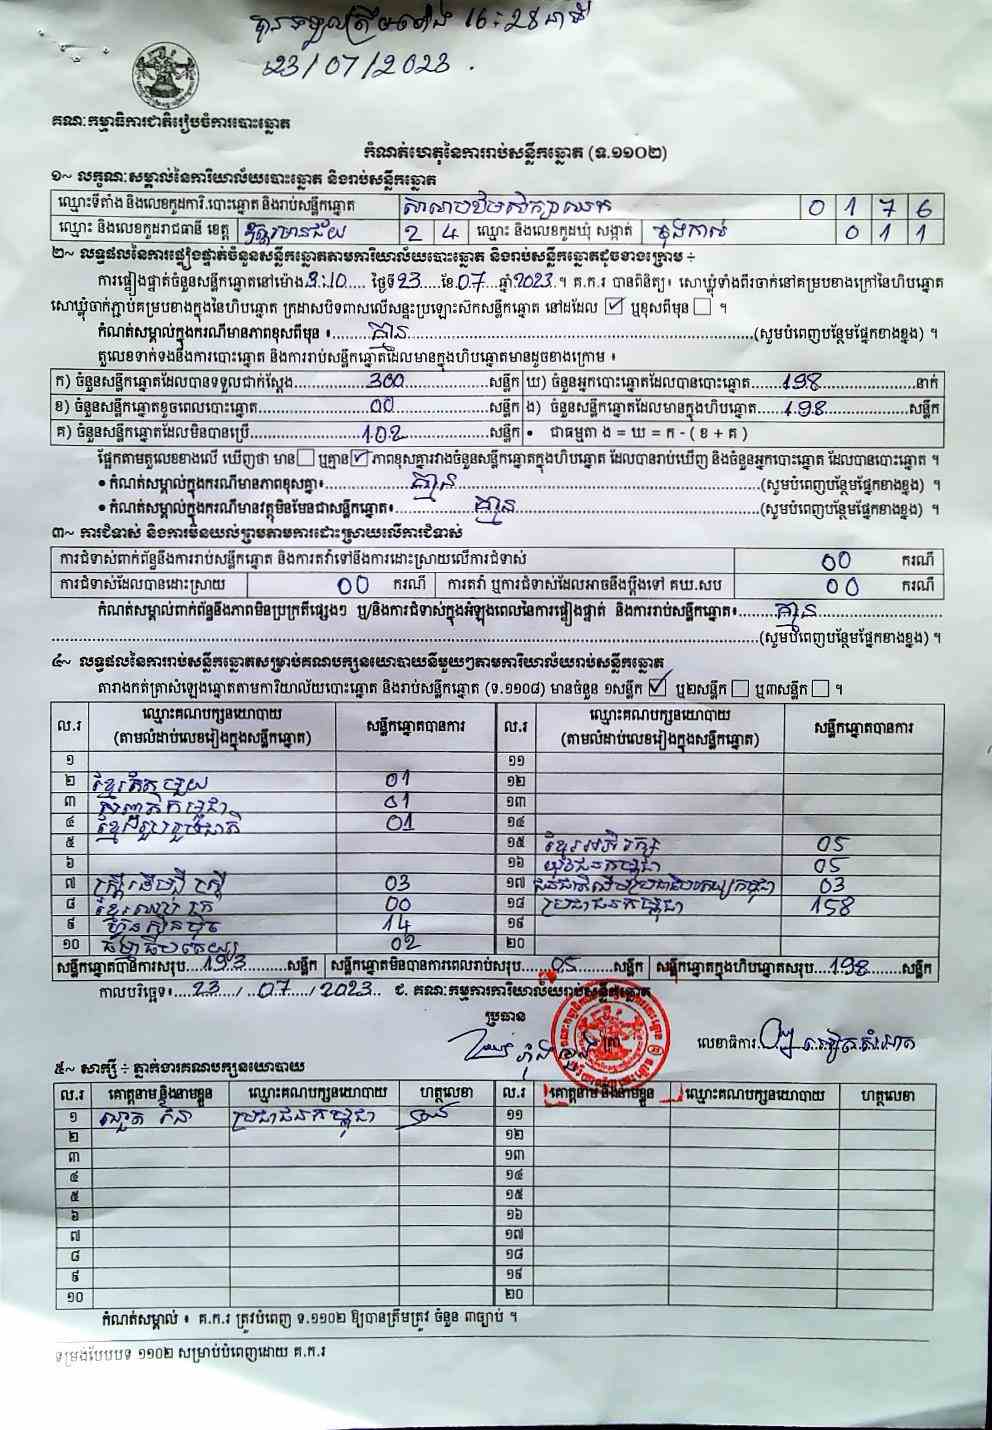 បានទទួលត្រឹមម៉ោង 16:28 នាទី
23/07/2023.
គណៈកម្មាធិការជាតិរៀបចំការបោះឆ្នោត
កំណត់ហេតុនៃការរាប់សន្លឹកឆ្នោត (ទ.១១០២)
១~ លក្ខណៈសម្គាល់នៃការិយាល័យបោះឆ្នោត និងរាប់សន្លឹកឆ្នោត
ឈ្មោះទីតាំង និងលេខកូដការិ.បោះឆ្នោត និងរាប់សន្លឹកឆ្នោត 0 1 7 6
ឈ្មោះ និងលេខកូដរាជធានី ខេត្ត ឧត្តរមានជ័យ 2 4 ឈ្មោះ និងលេខកូដឃុំ សង្កាត់ 0 1 1
២~ លទ្ធផលនៃការផ្ទៀងផ្ទាត់ចំនួនសន្លឹកឆ្នោតតាមការិយាល័យបោះឆ្នោត និងរាប់សន្លឹកឆ្នោតដូចខាងក្រោម ÷
ការផ្ទៀងផ្ទាត់ចំនួនសន្លឹកឆ្នោតនៅម៉ោង 3:10 ថ្ងៃទី 23 ខែ 07 ឆ្នាំ 2023 ។ គ.ក.រ បានពិនិត្យ៖ សោឃ្លុំទាំងពីរចាក់នៅគម្របខាងក្រៅនៃហិបឆ្នោត
សោឃ្លុំចាក់ភ្ជាប់គម្របខាងក្នុងនៃហិបឆ្នោត ក្រដាសបិទពាសលើសន្ទះប្រឡោះស៊កសន្លឹកឆ្នោត នៅដដែល ☑ ឬខុសពីមុន ☐ ។
កំណត់សម្គាល់ក្នុងករណីមានភាពខុសពីមុន ៖ គ្មាន (សូមបំពេញបន្ថែមផ្នែកខាងខ្នង) ។
តួលេខទាក់ទងនឹងការបោះឆ្នោត និងការរាប់សន្លឹកឆ្នោតដែលមានក្នុងហិបឆ្នោតមានដូចខាងក្រោម ៖
ក) ចំនួនសន្លឹកឆ្នោតដែលបានទទួលជាក់ស្តែង 300 សន្លឹក ឃ) ចំនួនអ្នកបោះឆ្នោតដែលបានបោះឆ្នោត 198 នាក់
ខ) ចំនួនសន្លឹកឆ្នោតខូចពេលបោះឆ្នោត 00 សន្លឹក ង) ចំនួនសន្លឹកឆ្នោតដែលមានក្នុងហិបឆ្នោត 198 សន្លឹក
គ) ចំនួនសន្លឹកឆ្នោតដែលមិនបានប្រើ 102 សន្លឹក • ជាធម្មតា ង = ឃ = ក - ( ខ + គ )
ផ្អែកតាមតួលេខខាងលើ ឃើញថា មាន ☐ ឬគ្មាន ☑ ភាពខុសគ្នារវាងចំនួនសន្លឹកឆ្នោតក្នុងហិបឆ្នោត ដែលបានរាប់ឃើញ និងចំនួនអ្នកបោះឆ្នោត ដែលបានបោះឆ្នោត ។
• កំណត់សម្គាល់ក្នុងករណីមានភាពខុសគ្នា៖ គ្មាន (សូមបំពេញបន្ថែមផ្នែកខាងខ្នង) ។
• កំណត់សម្គាល់ក្នុងករណីមានវត្ថុមិនមែនជាសន្លឹកឆ្នោត៖ គ្មាន (សូមបំពេញបន្ថែមផ្នែកខាងខ្នង) ។
៣~ ការជំទាស់ និងការមិនយល់ព្រមតាមការដោះស្រាយលើការជំទាស់
ការជំទាស់ពាក់ព័ន្ធនឹងការរាប់សន្លឹកឆ្នោត និងការតវ៉ាទៅនឹងការដោះស្រាយលើការជំទាស់ 00 ករណី
ការជំទាស់ដែលបានដោះស្រាយ 00 ករណី ការតវ៉ា ឬការជំទាស់ដែលអាចនឹងប្តឹងទៅ គឃ.សប 00 ករណី
កំណត់សម្គាល់ពាក់ព័ន្ធនឹងភាពមិនប្រក្រតីផ្សេងៗ ឬ/និងការជំទាស់ក្នុងអំឡុងពេលនៃការផ្ទៀងផ្ទាត់ និងការរាប់សន្លឹកឆ្នោត៖ គ្មាន
(សូមបំពេញបន្ថែមផ្នែកខាងខ្នង) ។
៤~ លទ្ធផលនៃការរាប់សន្លឹកឆ្នោតសម្រាប់គណបក្សនយោបាយនីមួយៗតាមការិយាល័យរាប់សន្លឹកឆ្នោត
តារាងកត់ត្រាសំឡេងឆ្នោតតាមការិយាល័យបោះឆ្នោត និងរាប់សន្លឹកឆ្នោត (ទ.១១០៨) មានចំនួន ១សន្លឹក ☑ ឬ២សន្លឹក ☐ ឬ៣សន្លឹក ☐ ។
ល.រ ឈ្មោះគណបក្សនយោបាយ (តាមលំដាប់លេខរៀងក្នុងសន្លឹកឆ្នោត) សន្លឹកឆ្នោតបានការ ល.រ ឈ្មោះគណបក្សនយោបាយ (តាមលំដាប់លេខរៀងក្នុងសន្លឹកឆ្នោត) សន្លឹកឆ្នោតបានការ
១ ១១
២ ខ្មែរតែមួយ 01 ១២
៣ សញ្ជាតិកម្ពុជា 01 ១៣
៤ ខ្មែររួបរួមជាតិ 01 ១៤
៥ ១៥ ខ្មែរអភិរក្ស 05
៦ ១៦ យុវជនកម្ពុជា 05
៧ ស្រ្តីដើម្បីស្រ្តី 03 ១៧ ជនជាតិដើមប្រជាធិបតេយ្យកម្ពុជា 03
៨ 00 ១៨ ប្រជាជនកម្ពុជា 158
៩ ហ៊្វុនស៊ិនប៉ិច 14 ១៩
១០ ធម្មាធិបតេយ្យ 02 ២០
សន្លឹកឆ្នោតបានការសរុប 193 សន្លឹក សន្លឹកឆ្នោតមិនបានការពេលរាប់សរុប 05 សន្លឹក សន្លឹកឆ្នោតក្នុងហិបឆ្នោតសរុប 198 សន្លឹក
កាលបរិច្ឆេទ៖ 23 / 07 / 2023 ជ. គណៈកម្មការការិយាល័យរាប់សន្លឹកឆ្នោត
ប្រធាន
លេខាធិការ
៥~ សាក្សី ÷ ភ្នាក់ងារគណបក្សនយោបាយ
ល.រ គោត្តនាម និងនាមខ្លួន ឈ្មោះគណបក្សនយោបាយ ហត្ថលេខា ល.រ គោត្តនាម និងនាមខ្លួន ឈ្មោះគណបក្សនយោបាយ ហត្ថលេខា
១ ប្រជាជនកម្ពុជា ១១
២ ១២
៣ ១៣
៤ ១៤
៥ ១៥
៦ ១៦
៧ ១៧
៨ ១៨
៩ ១៩
១០ ២០
កំណត់សម្គាល់ ៖ គ.ក.រ ត្រូវបំពេញ ទ.១១០២ ឱ្យបានត្រឹមត្រូវ ចំនួន ៣ច្បាប់ ។
ទម្រង់បែបបទ ១១០២ សម្រាប់បំពេញដោយ គ.ក.រ